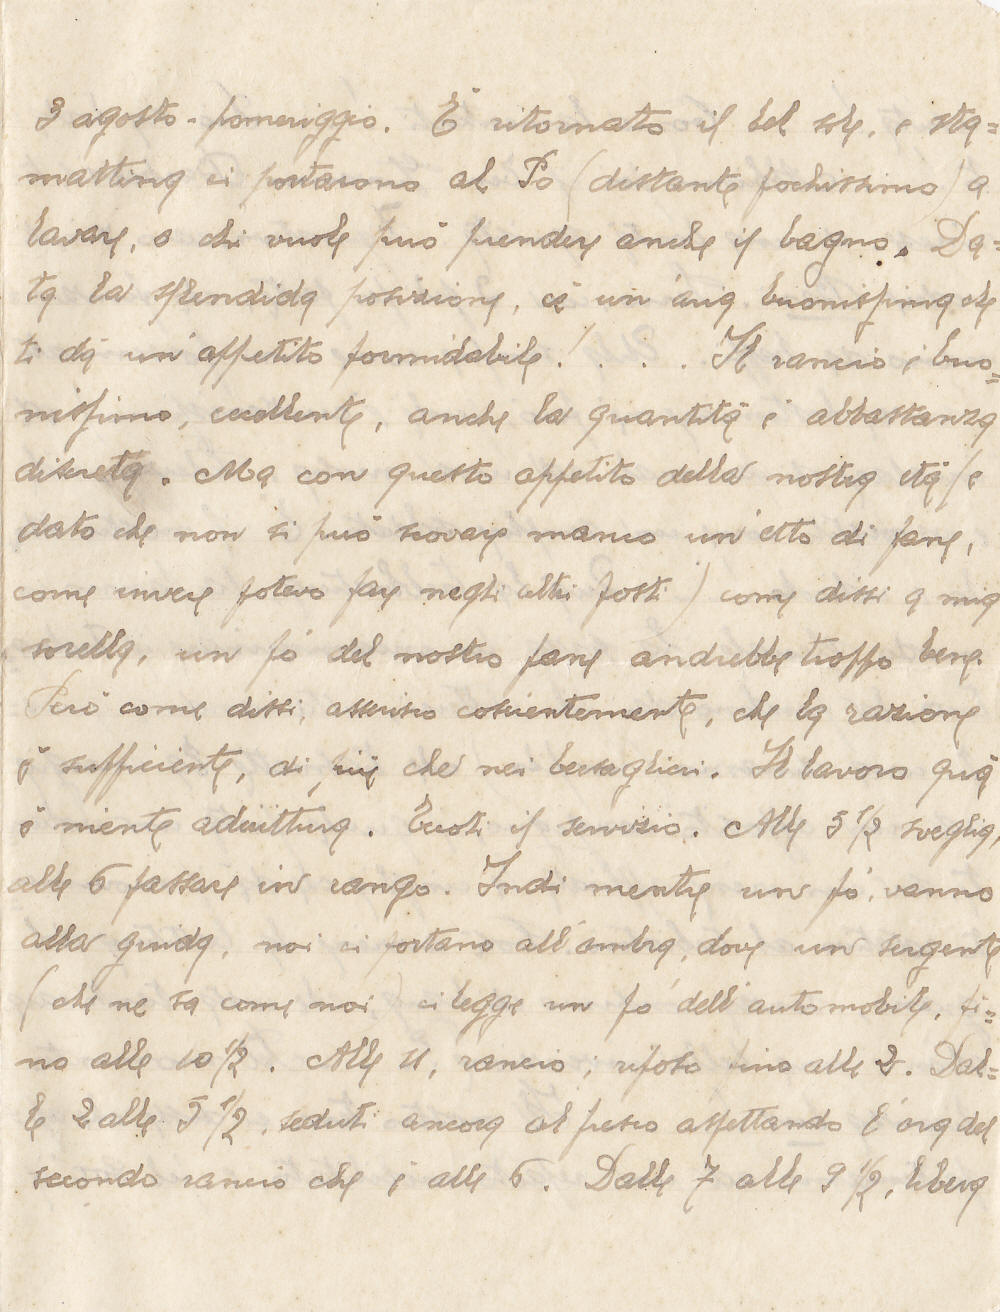 3 agosto - pomeriggio. È ritornato il bel sole, e sta=
mattina ci portarono al Po (distante pochissimo) a
lavare, e chi vuole può prendere anche il bagno. Da=
ta la splendida posizione, c'è un'aria buonissima che
ti dà un'appetito formidabile! . . . . Il rancio è buo=
nissimo, eccellente, anche la quantità è abbastanza
discreta. Ma con questo appetito della nostra età (e
dato che non si può scovare manco un'etto di pane,
come invece potevo fare negli altri posti) come dissi a mia
sorella, un po' del nostro pane andrebbe troppo bene.
Però come dissi, asserisco coscientemente, che la razione
è sufficiente, di più che nei bersaglieri. Il lavoro quà
è niente adirittura. Eccoti il servizio. Alle 5 1/2 sveglia,
alle 6 passare in rango. Indi mentre un po' vanno
alla guida, noi ci portano all'ombra, dove un sergente
(che ne sa come noi) ci legge un po' dell'automobile, fi=
no alle 10 1/2. Alle 11, rancio; riposo fino alle 2. Dal=
le 2 alle 5 1/2, seduti ancora al fresco aspettando l'ora del
secondo rancio che è alle 6. Dalle 7 alle 9 1/2, libera